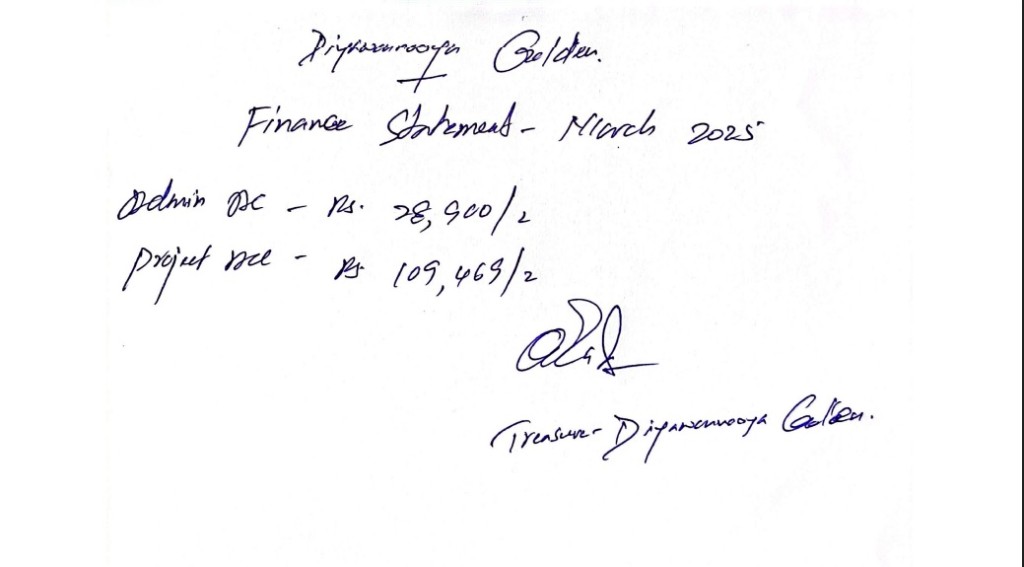 Diyawannaoya Golden.
Finance Statement - March 2025
Admin AC - Rs. 28,900/=
Project ACC - Rs 109,469/=
Treasurer Diyawannaoya Golden.